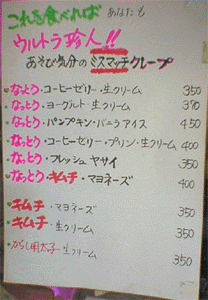 これを食べれば あなたも
ウルトラ珍人!!
あそび気分の ミスマッチクレープ
なっとう・コーヒーゼリー・生クリーム 350
なっとう・ヨーグルト・生クリーム 370
なっとう・パンプキン・バニラアイス 450
なっとう・コーヒーゼリー・プリン・生クリーム 400
なっとう・フレッシュヤサイ 350
なっとう・キムチ・マヨネーズ 400
キムチ・マヨネーズ 350
キムチ・生クリーム 350
からし明太子・生クリーム 350